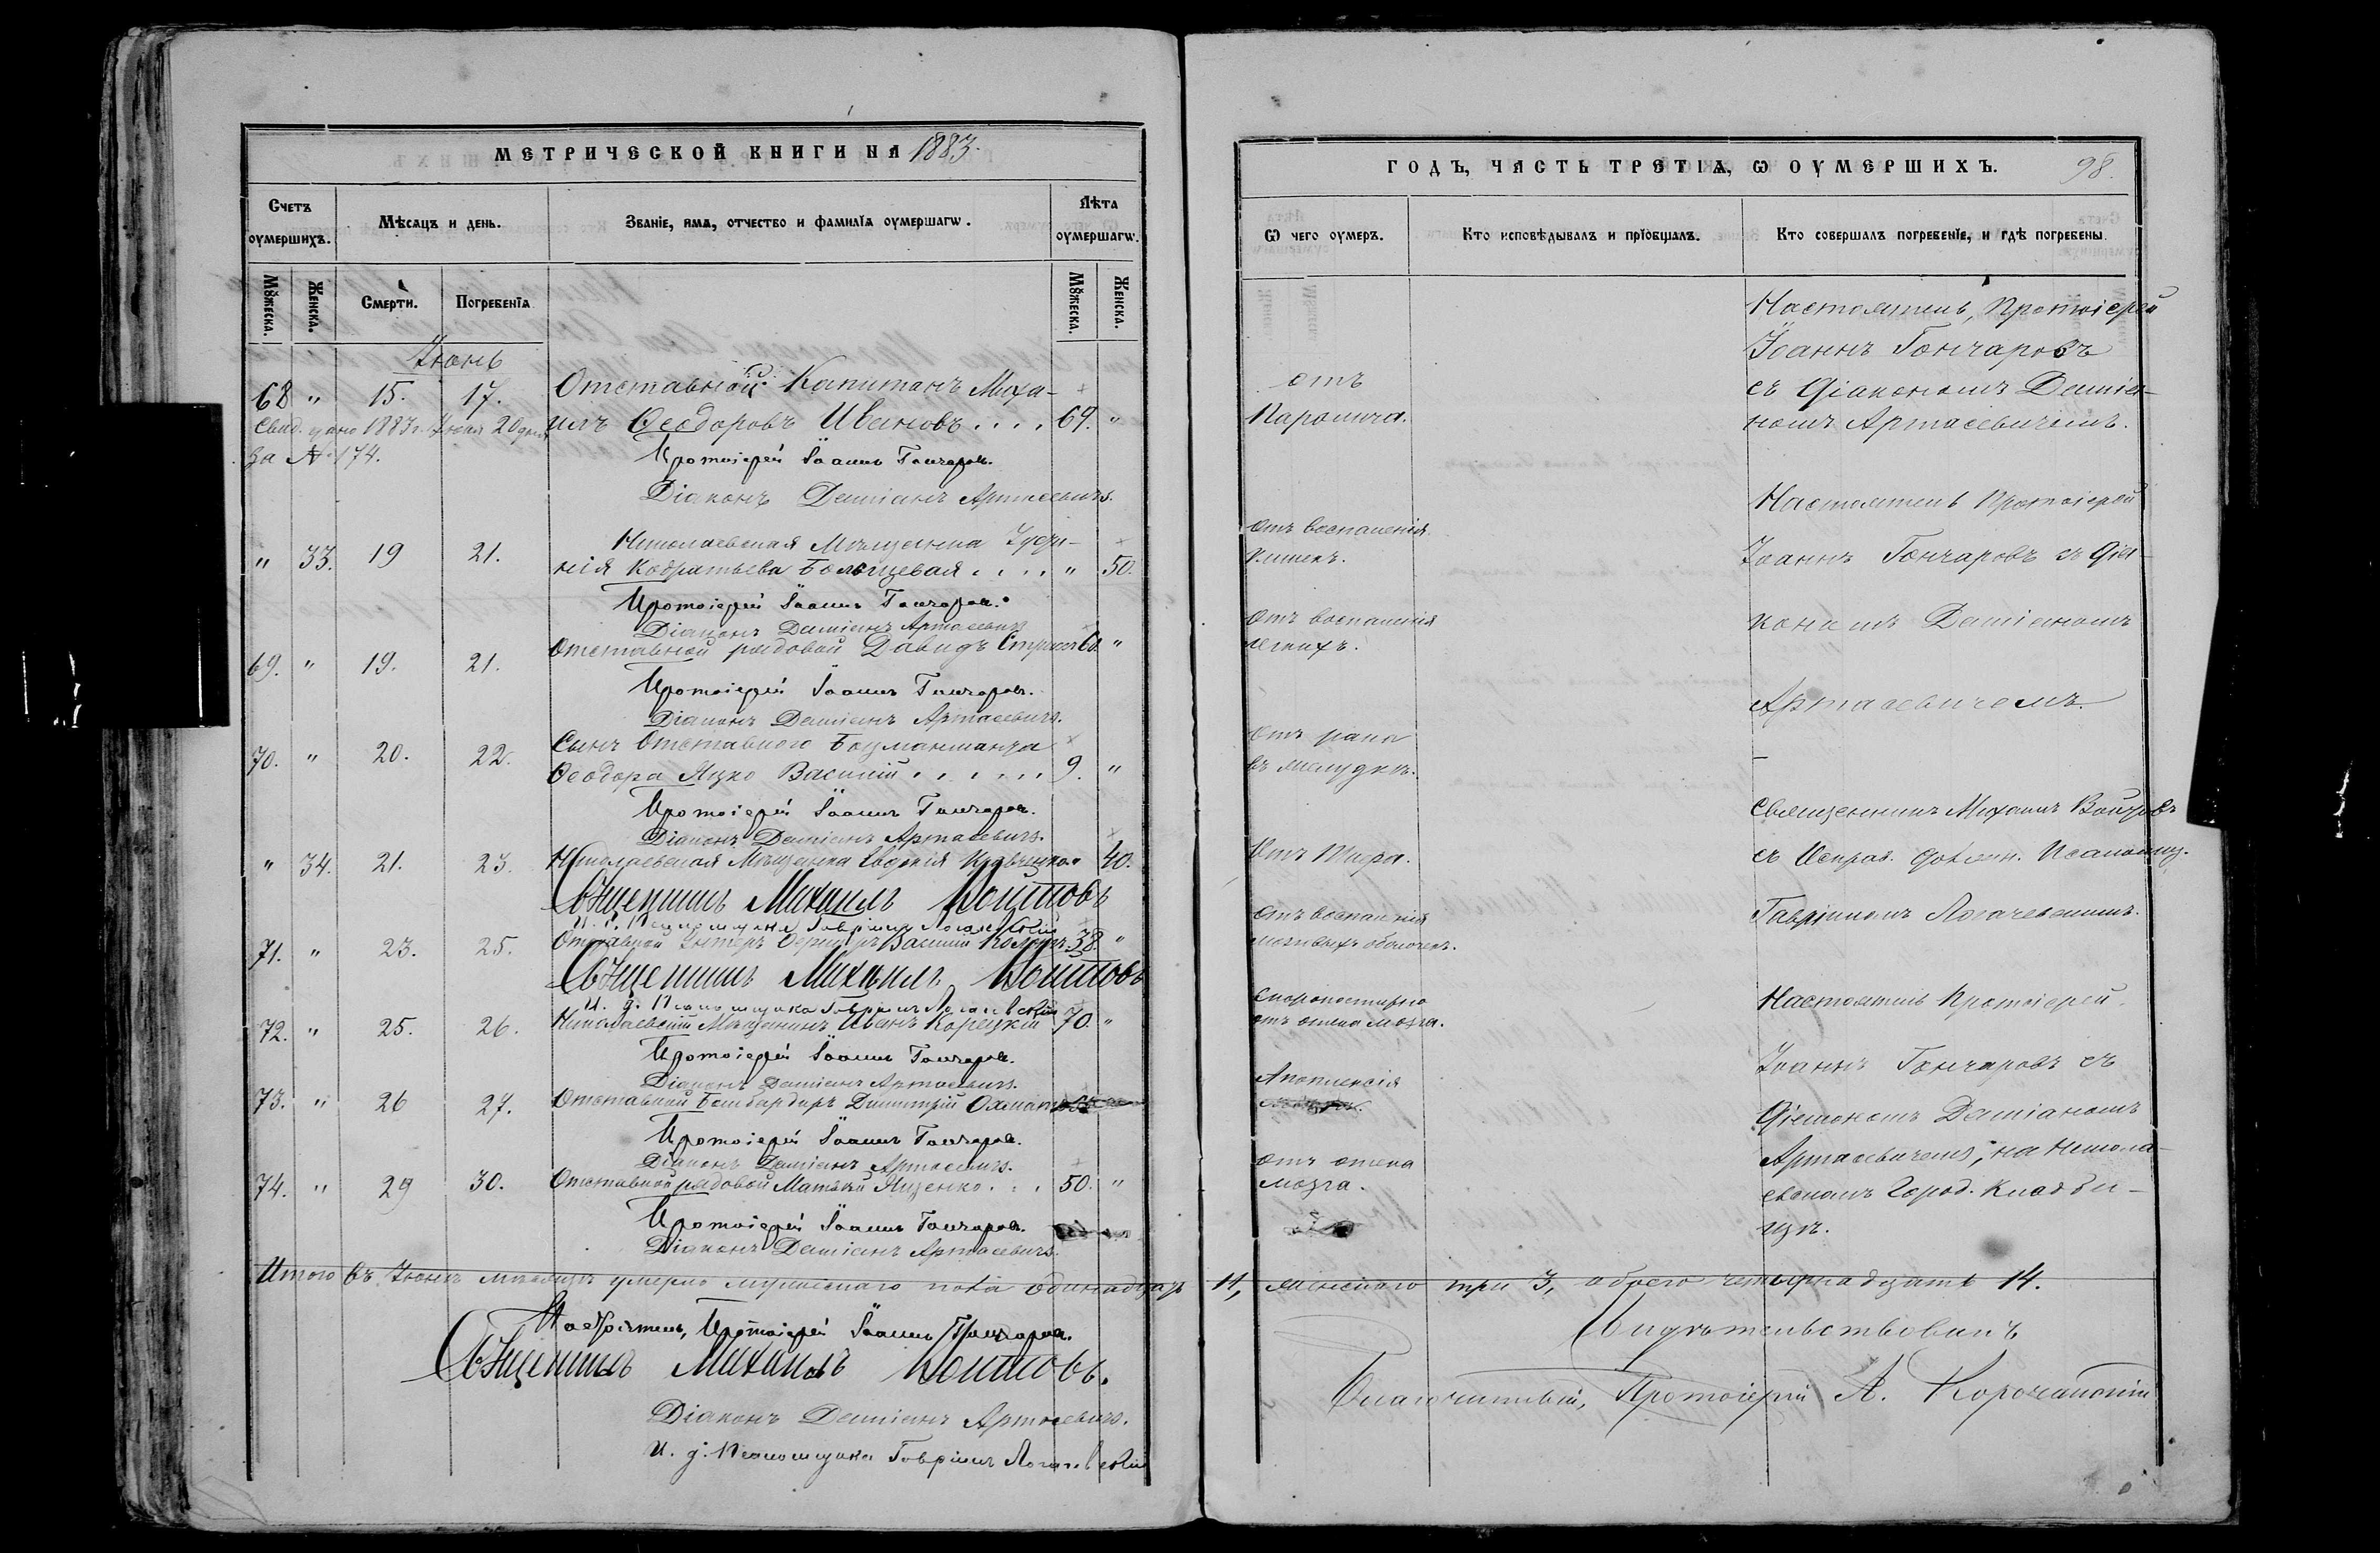 МЕТРИЧЕСКОЙ КНИГИ НА 1883.
Счетъ оумершихъ.
Мѣсяцъ и день.
Званіе, имя, отчество и фамилія оумершагѡ.
Лѣта оумершагѡ.
Мꙋжеска. Женска. Смерти. Погребенїа Мꙋжеска. Женска.
Іюнь
68 " 15. 17. Отставной Капитанъ Миха-
илъ Ѳеодоровъ Ивановъ .... 69. "
Свид. дано 1883 г. Іюня 20 дня
за № 174.
Протоіерей Іоаннъ Гончаровъ.
Діаконъ Даміанъ Артасевичъ.
" 33. 19 21. Николаевская Мѣщанка
нія Кодратьева .... " 50.
Протоіерей Іоаннъ Гончаровъ.
Діаконъ Даміанъ Артасевичъ
69. " 19. 21. Отставной рядовой Давидъ "
Протоіерей Іоаннъ Гончаровъ.
Діаконъ Даміанъ Артасевичъ.
70. " 20. 22. Сынъ Отставного Боцманмата
Ѳеодора Яцко Василій ...... 9. "
Протоіерей Іоаннъ Гончаровъ.
Діаконъ Даміанъ Артасевичъ.
" 34. 21. 23. Николаевская Мѣщанка Евдокія " 40.
Священникъ Михаилъ Войтовъ
71. " 23. 25. Отставной Унтеръ Офицеръ Василій 38. "
Священникъ Михаилъ Войтовъ
72. " 25. 26. Николаевскій Мѣщанинъ Иванъ Корецкій 70. "
Протоіерей Іоаннъ Гончаровъ.
Діаконъ Даміанъ Артасевичъ.
73. " 26 27. Отставной Бомбардиръ Димитрій
Протоіерей Іоаннъ Гончаровъ.
Діаконъ Даміанъ Артасевичъ.
74. " 29 30. Отставной рядовой Матвѣй Яценко ... 50. "
Протоіерей Іоаннъ Гончаровъ.
Діаконъ Даміанъ Артасевичъ.
Итого въ Іюнѣ мѣсяцѣ умерло мужескаго пола одинадцать 11, женскаго три 3, обоего четырнадцать 14.
Настоятель, Протоіерей Іоаннъ Гончаровъ.
Священникъ Михаилъ Войтовъ.
Діаконъ Даміанъ Артасевичъ.
И. д. Псаломщика Гавріилъ Логачевскій
ГОДЪ, ЧАСТЬ ТРЕТІѦ, Ѡ ОУМЕРШИХЪ. 98.
Ѿ чего оумеръ.
Кто исповѣдывалъ и прїобщалъ.
Кто совершалъ погребенїе, и гдѣ погребены.
отъ
Паралича.
отъ воспаленія
кишекъ.
отъ воспаленія
легкихъ.
отъ рака
въ желудкѣ.
Отъ Тифа.
отъ воспаленія
мозговыхъ оболочекъ.
Скоропостижно
отъ отека мозга.
Апоплексія
отъ отека
мозга.
Настоятель, Протоіерей
Іоаннъ Гончаровъ
съ Діакономъ Даміа-
номъ Артасевичемъ.
Настоятель Протоіерей
Іоаннъ Гончаровъ съ Діа-
кономъ Даміаномъ
Артасевичемъ.
Священникъ Михаилъ Войтовъ
съ Исправ. должн. Псаломщ.
Гавріиломъ Логачевскимъ.
Настоятель Протоіерей
Іоаннъ Гончаровъ съ
Діакономъ Даміаномъ
Артасевичемъ, на Никола-
евскомъ Город. Кладби-
щѣ.
Свидѣтельствовалъ
Благочинный, Протоіерей А. Корочанскій